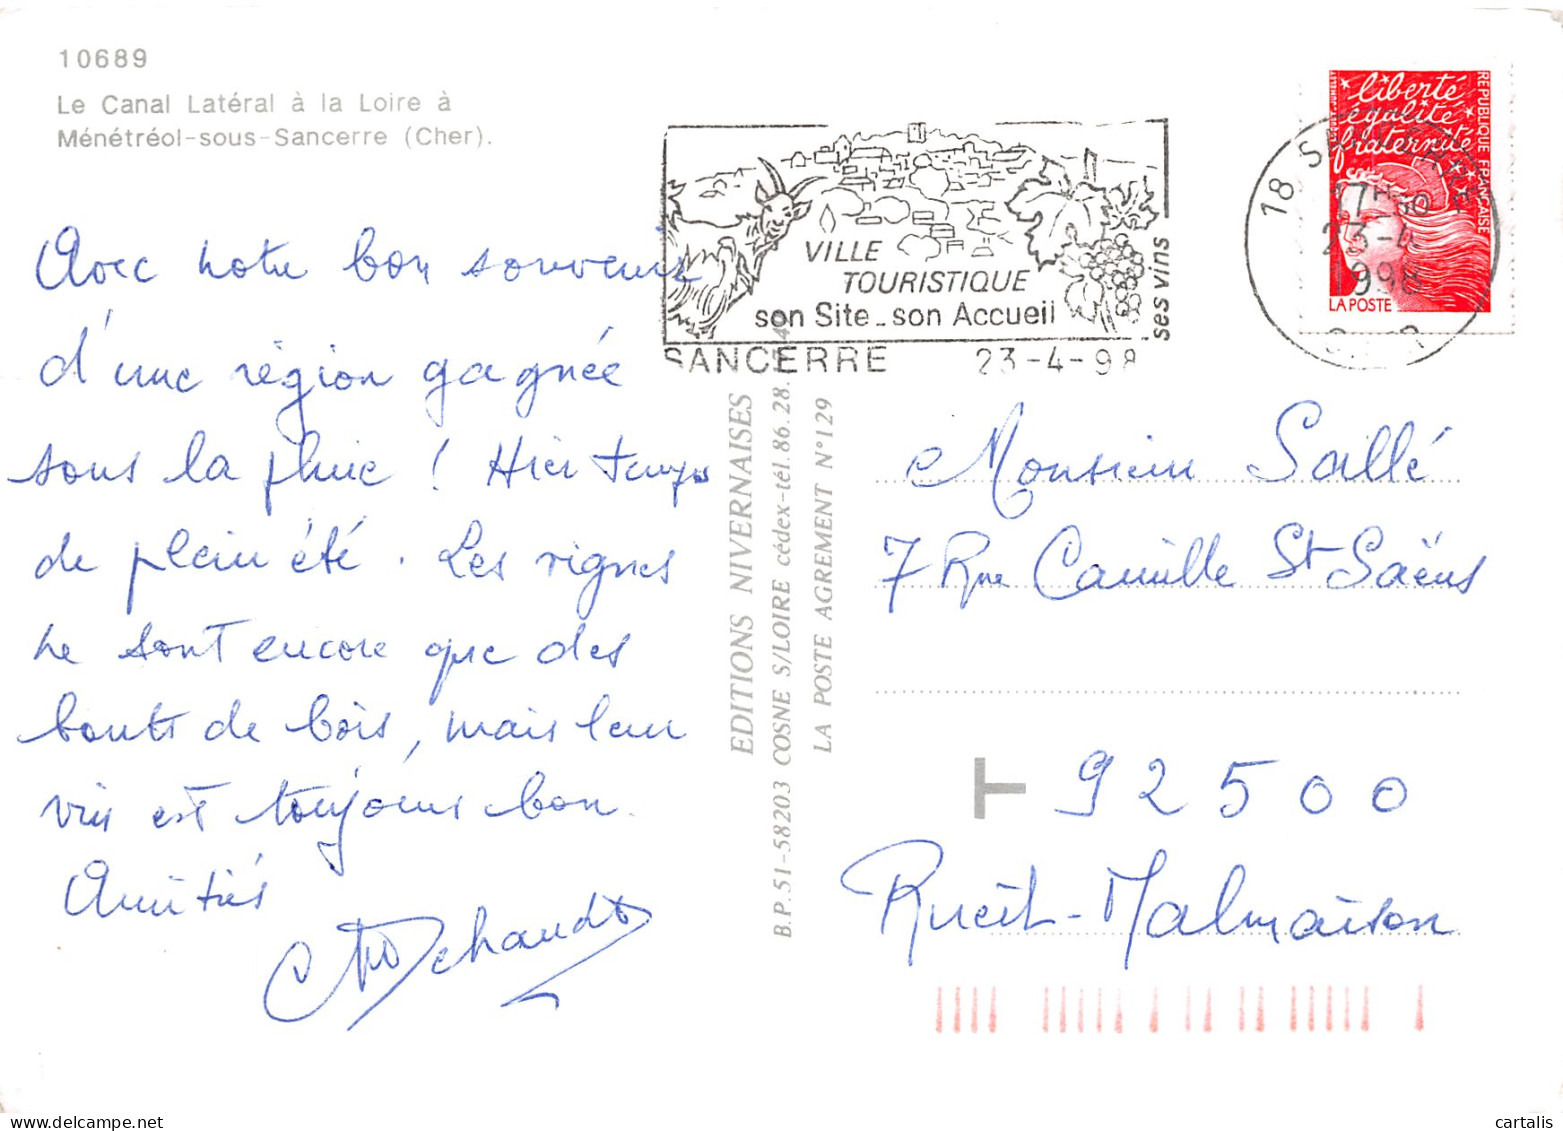 10689
Le Canal Latéral à la Loire à
Ménétréol-sous-Sancerre (Cher).
Avec notre bon souvenir
d'une région gagnée
sous la pluie ! Hier temps
de plein été. Les vignes
ne sont encore que des
bouts de bois, mais leur
vin est toujours bon.
Amitiés
Dechaudt
VILLE
TOURISTIQUE
son Site - son Accueil
ses vins
SANCERRE 23-4-98
18 SANCERRE
17H30
23-4
1998
CHER
liberté
égalité
fraternité
REPUBLIQUE FRANÇAISE
LA POSTE
EDITIONS NIVERNAISES
B.P. 51-58203 COSNE S/LOIRE cédex-tél. 86.28.
LA POSTE AGREMENT N° 129
Monsieur Sallé
7 Rue Camille St Saëns
T 92500
Rueil-Malmaison
cartalis